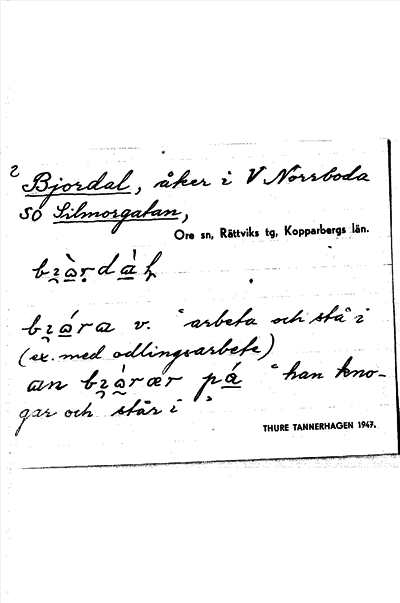 2 Bjordal, åker i V Norrboda
SO Silmorgatan,
Ore sn, Rättviks tg, Kopparbergs län.
v. "arbeta och stå i"
(ex. med odlingsarbete)
"han kno-
gar och står i"
THURE TANNERHAGEN 1947.